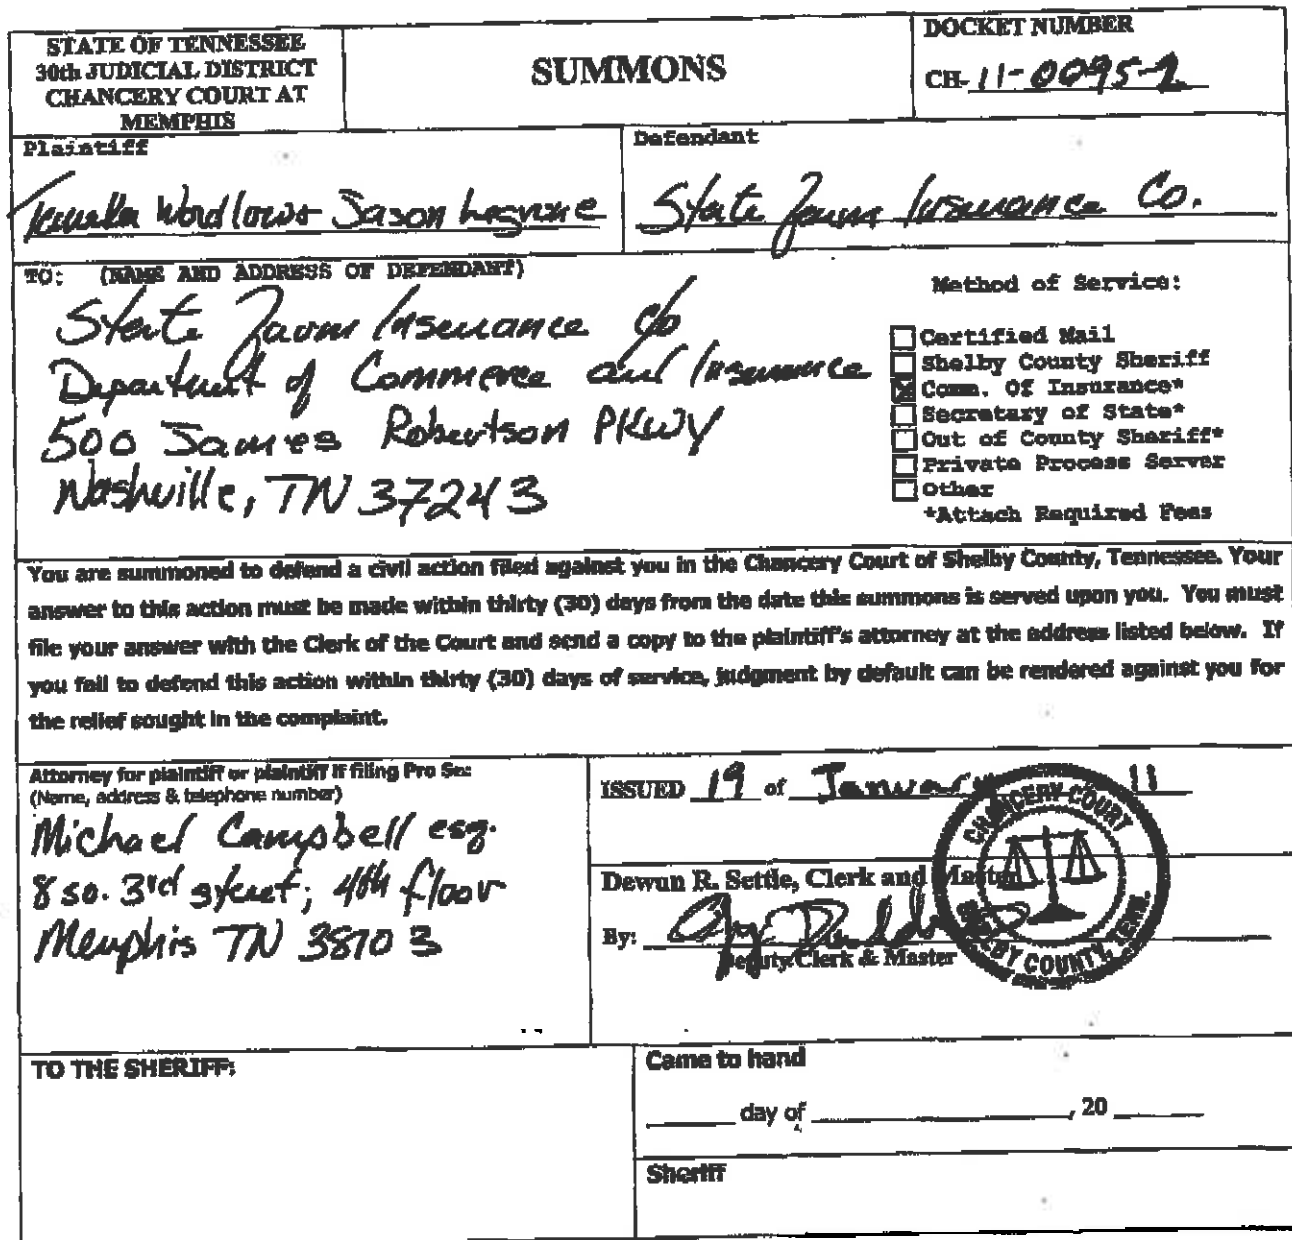 STATE OF TENNESSEE
30th JUDICIAL DISTRICT
CHANCERY COURT AT
MEMPHIS
SUMMONS
DOCKET NUMBER
CH- 11-0095-2
Plaintiff
Jason
Defendant
State Farm Insurance Co.
TO: (NAME AND ADDRESS OF DEFENDANT)
State Farm Insurance c/o
Department of Commerce and Insurance
500 James Robertson PKWY
Nashville, TN 37243
Method of Service:
Certified Mail
Shelby County Sheriff
Comm. Of Insurance*
Secretary of State*
Out of County Sheriff*
Private Process Server
Other
*Attach Required Fees
You are summoned to defend a civil action filed against you in the Chancery Court of Shelby County, Tennessee. Your
answer to this action must be made within thirty (30) days from the date this summons is served upon you. You must
file your answer with the Clerk of the Court and send a copy to the plaintiff's attorney at the address listed below. If
you fail to defend this action within thirty (30) days of service, judgment by default can be rendered against you for
the relief sought in the complaint.
Attorney for plaintiff or plaintiff if filing Pro Se:
(Name, address & telephone number)
Michael Campbell esq.
8 so. 3rd street, 4th floor
Memphis TN 38103
ISSUED 19 of January 11
Dewun R. Settle, Clerk and Master
By:
Deputy Clerk & Master
CHANCERY COURT
SHELBY COUNTY, TENN.
TO THE SHERIFF:
Came to hand
day of , 20
Sheriff